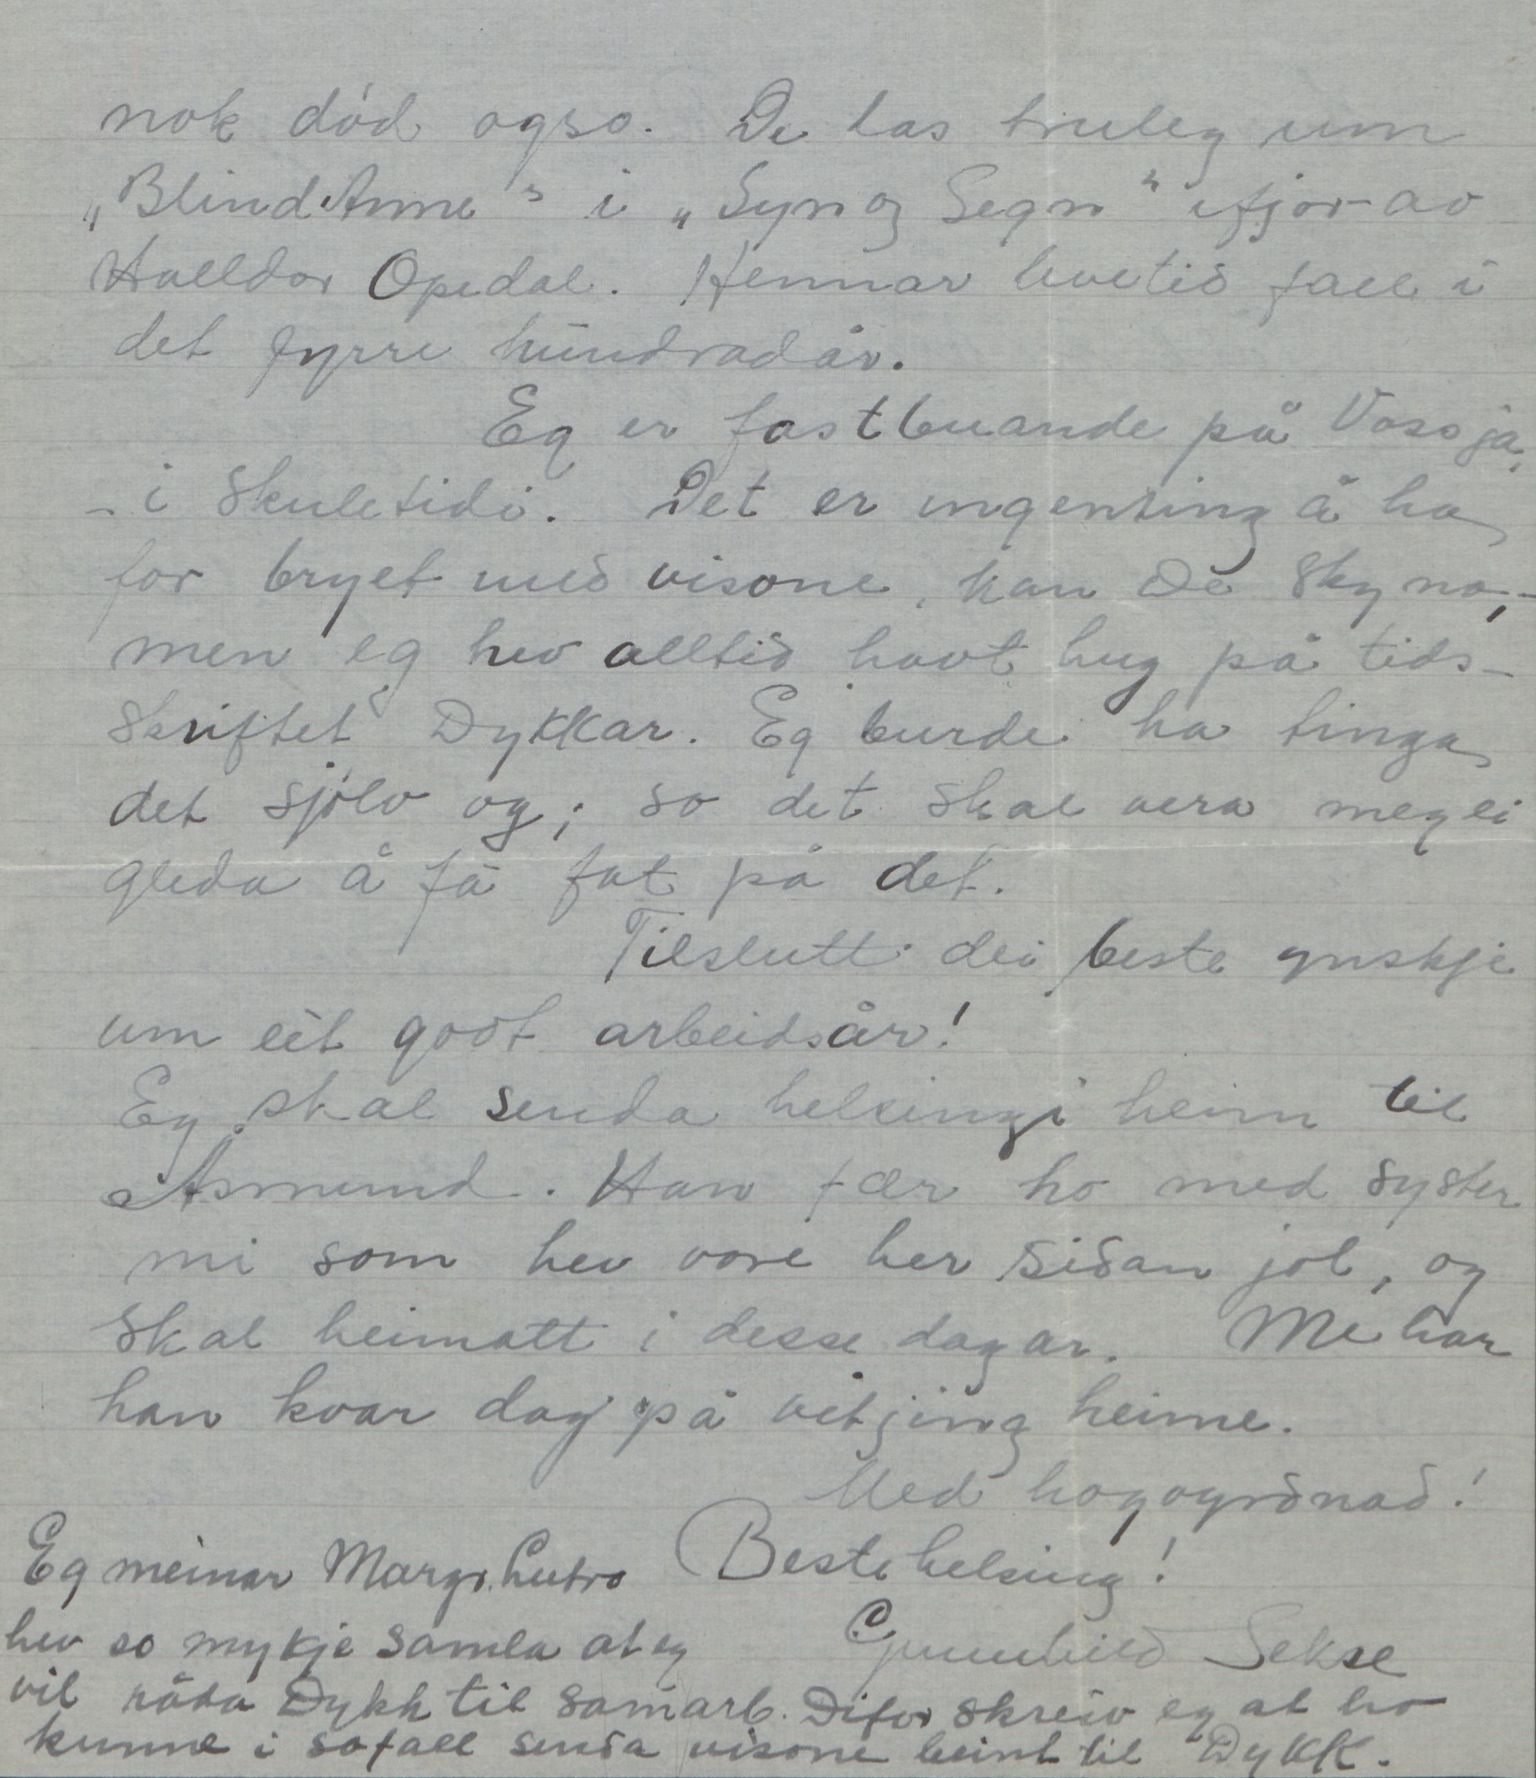 nok död ogso. De las truleg um
„Blind Anne" i „Syn og Segn" ifjor av
Halldor Opedal. Hennar livetid fall i
det fyrre hundradår.
Eg er fastbuande på Vossja,
- i skuletidi. Det er ingenting å ha
for bryet med visone, kan De skyna, -
men eg hev alltid havt hug på tids-
skriftet Dykkar. Eg burde ha tinga
det sjölv og; so det skal vera meg ei
gleda å få fat på det.
Tilslutt dei beste ynskje
um eit godt arbeidsår!
Eg skal senda helsingi heim til
Asmund. Han fær ho med syster
mi som hev vore her sidan jol, og
skal heimatt i desse dagar. Me har
han kvar dag på vitjing heime.
Med högvyrdnad!
Beste helsing!
Gunnhild Sekse
Eg meinar Margr. Lutro
hev so mykje samla at eg
vil råda Dykk til samarb. Difor skreiv eg at ho
kunne i sofall senda visone beint til Dykk.